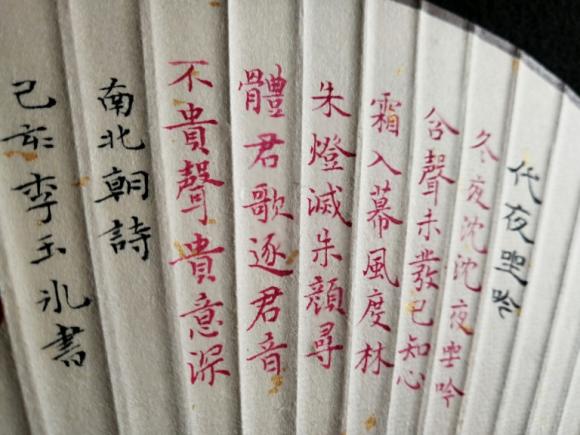 代夜坐吟
冬夜沈沈夜坐吟
含聲未發已知心
霜入幕風度林
朱燈滅朱顏尋
體君歌逐君音
不貴聲貴意深
南北朝詩
己亥李玉氷書